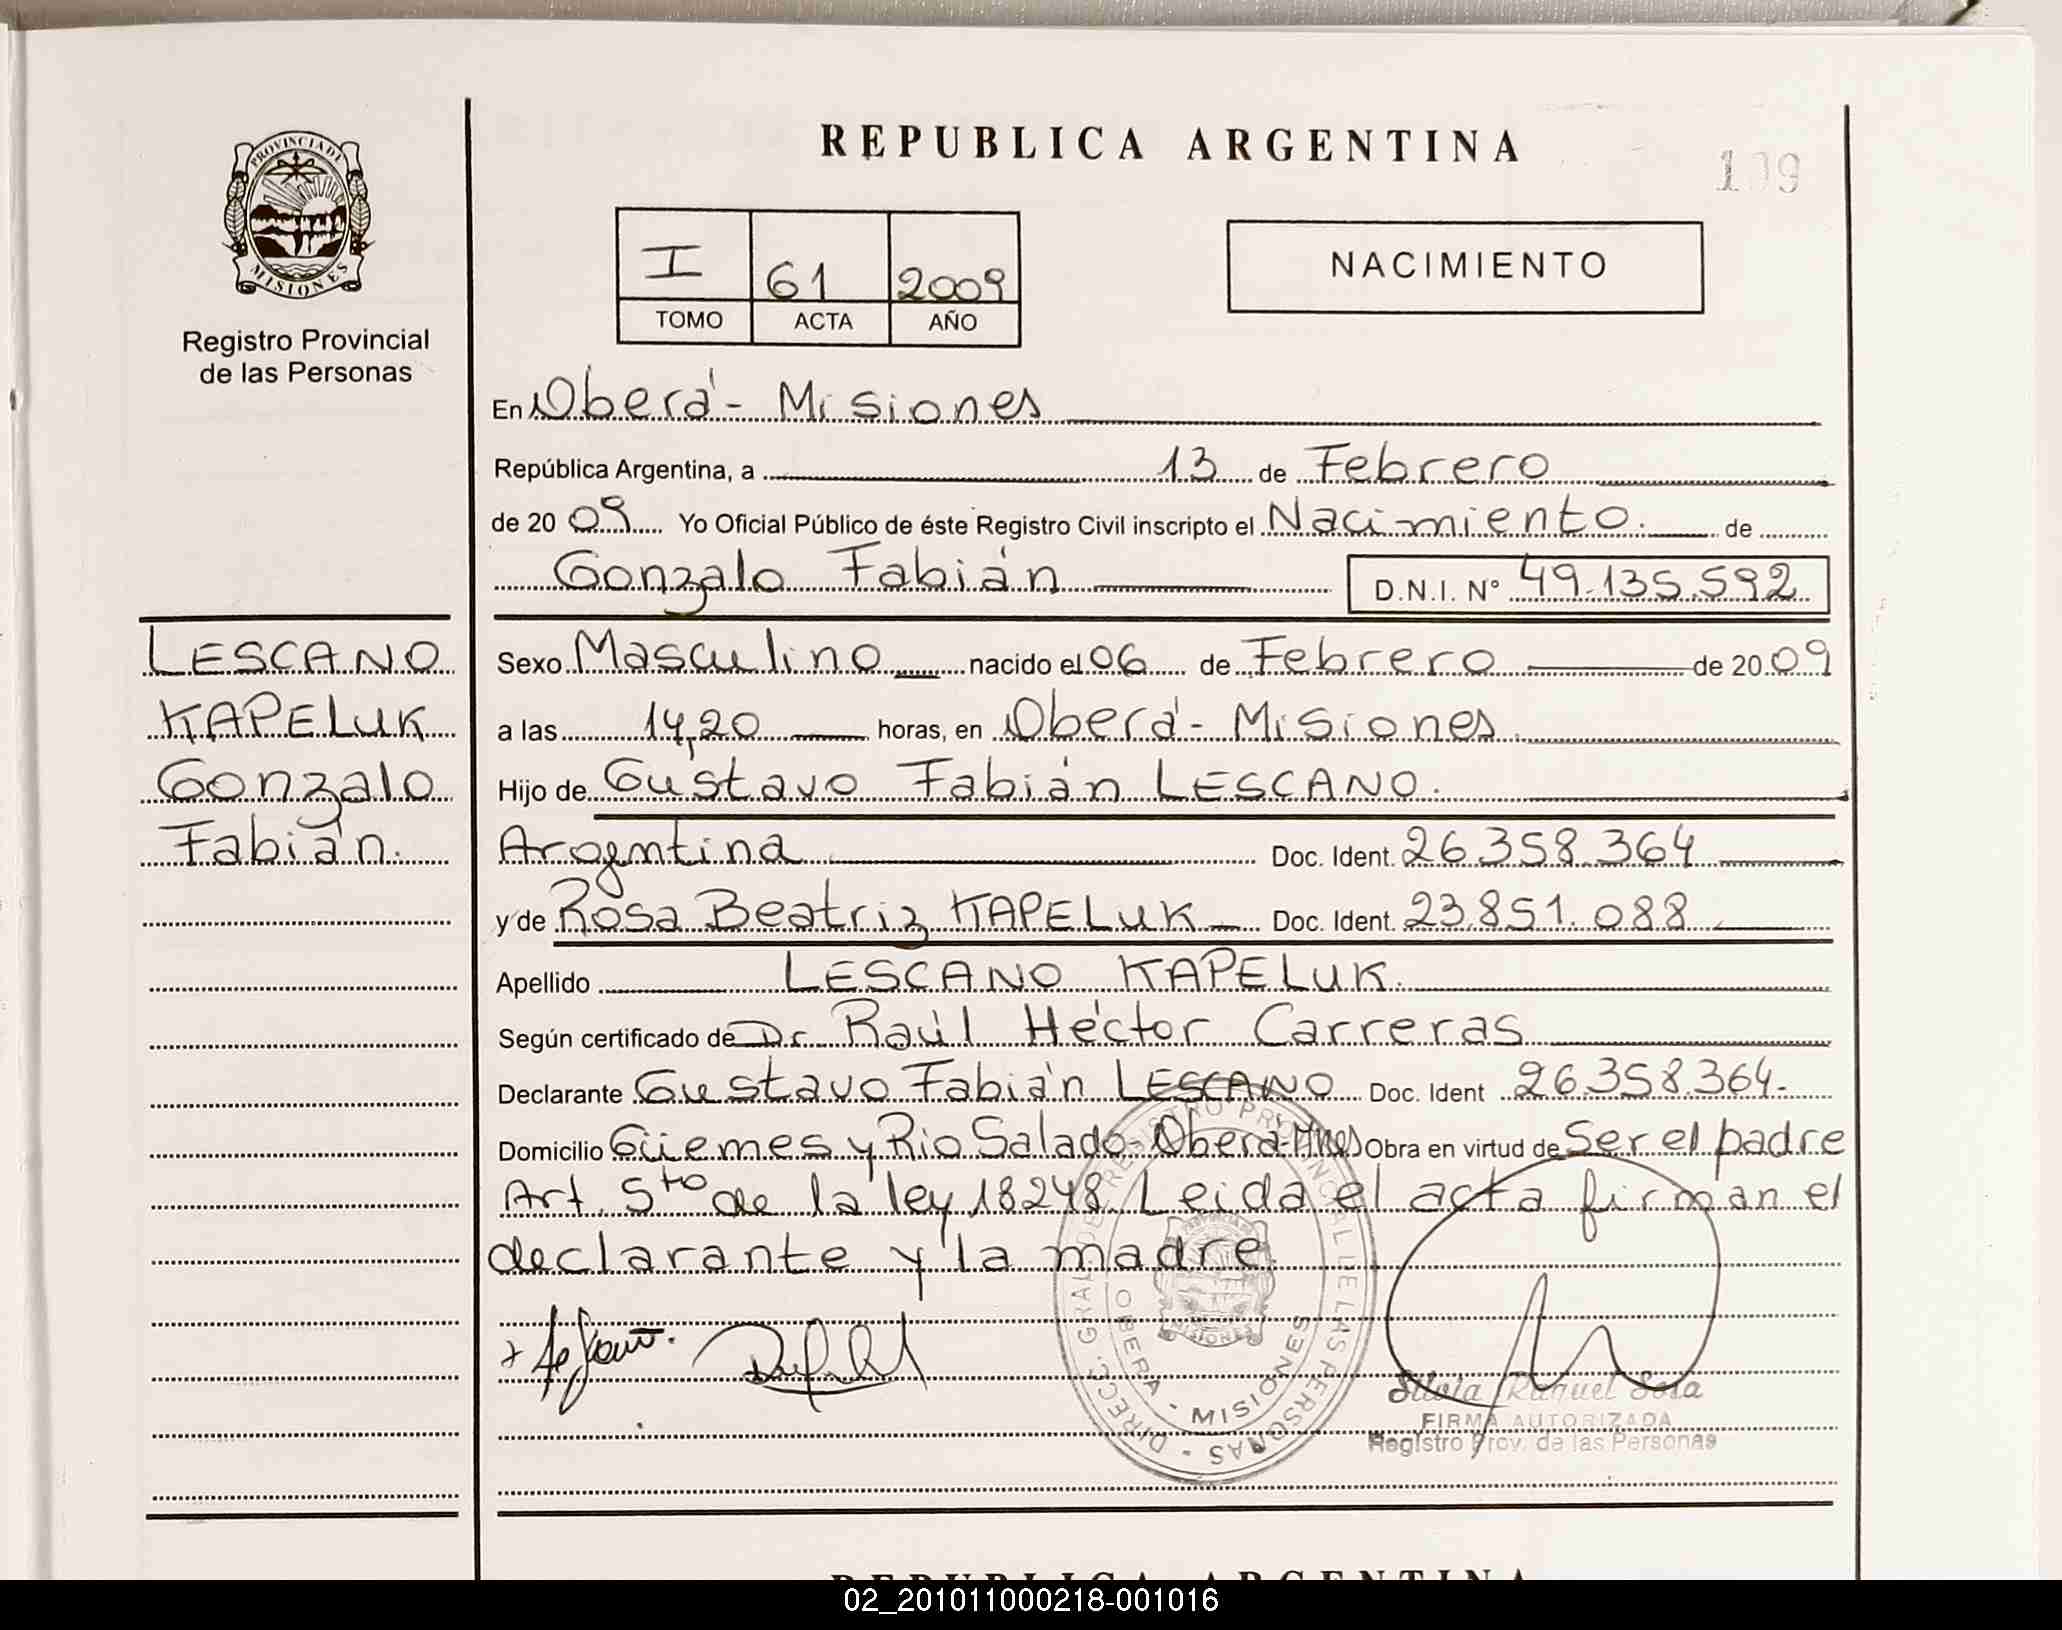 REPUBLICA ARGENTINA
PROVINCIA DE
MISIONES
Registro Provincial
de las Personas
I 61 2009
TOMO ACTA AÑO
NACIMIENTO
En Oberá - Misiones
República Argentina, a 13 de Febrero
de 20 09 Yo Oficial Público de éste Registro Civil inscripto el Nacimiento. de
Gonzalo Fabián D.N.I. Nº 49.135.592
LESCANO
KAPELUK
Gonzalo
Fabián.
Sexo Masculino nacido el 06 de Febrero de 20 09
a las 14,20 horas, en Oberá - Misiones.
Hijo de Gustavo Fabián LESCANO.
Argentina Doc. Ident. 26.358.364
y de Rosa Beatriz KAPELUK Doc. Ident. 23.851.088
Apellido LESCANO KAPELUK.
Según certificado de Dr. Raúl Héctor Carreras
Declarante Gustavo Fabián LESCANO Doc. Ident 26.358.364.
Domicilio Güemes y Rio Salado - Oberá - Mnes Obra en virtud de Ser el padre
Art. 5to de la ley 18248. Leida el acta firman el
declarante y la madre.
DIRECC. GRAL. DE REGISTRO PROVINCIAL DE LAS PERSONAS -
OBERA - MISIONES
MISIONES
Silvia Raquel Sosa
FIRMA AUTORIZADA
Registro Prov. de las Personas
REPUBLICA ARGENTINA
02_201011000218-001016